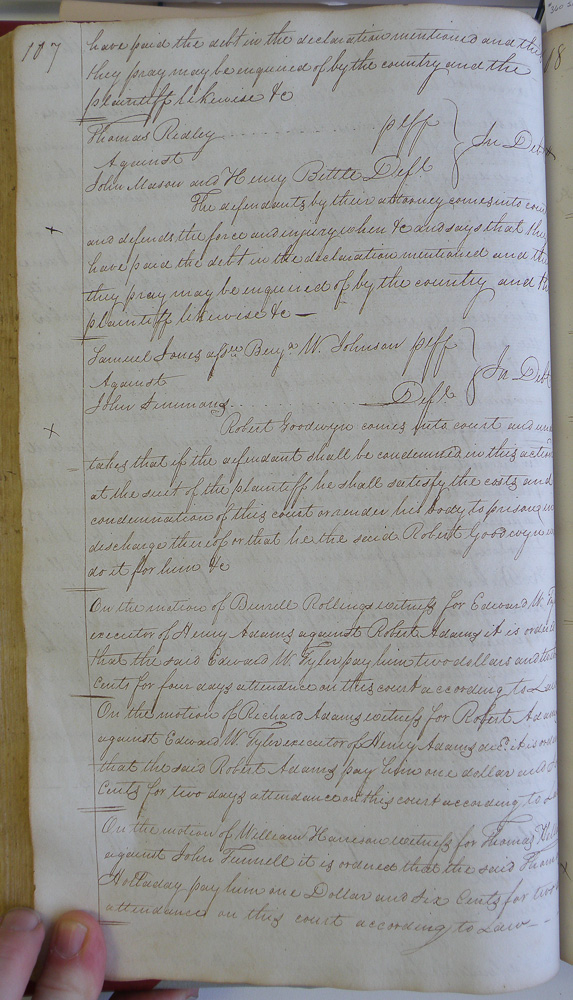 187
have paid the debt in the declaration mentioned and this
they pray may be enquired of by the country and the
plaintiff likewise &c
Thomas Ridley plff
Against
In Debt
John Mason and Henry Bittle Deft.
The defendants by their attorney comes into
and defends the force and injury when &c and says that they
have paid the debt in the declaration mentioned and
they pray may be enquired of by the country and
plaintiff likewise &c
Samuel Jones assee Benja. W. Johnson plff
Against
In Debt
John Simmons Deft
Robert Goodwyn comes into court and
takes that if the defendant shall be condemned in this action
at the suit of the plaintiff he shall satisfy the costs and
condemnation of this court or render his body to prison in
discharge thereof or that he the said Robert Goodwyn
do it for him &c
On the motion of Burrell Rollings witness for Edward W.
executor of Henry Adams against Robert Adams it is
that the said Edward W. Tyler pay him two dollars and
Cents for four days attendance on this court according to
On the motion of Richard Adams witness for Robert
against Edward W. Tyler executor of Henry Adams decd. it is
that the said Robert Adams pay him one dollar and
Cents for two days attendance on this court according to
On the motion of William Harrison witness for Thomas
against John Tunnell it is ordered that the said
Holladay pay him one Dollar and six Cents for two
attendance on this court according to Law